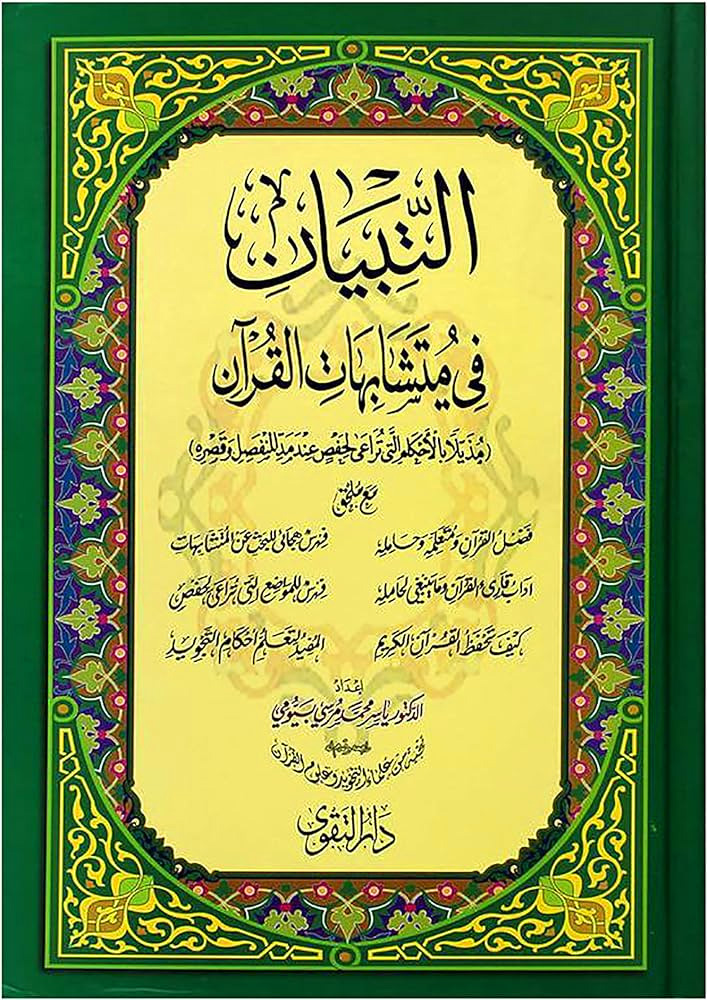 التِّبْيَانِ
فِي مُتَشَابِهَاتِ القُرْآنِ
(مُذَيَّلًا بِالأَحْكَامِ الَّتِي تُرَاعَى لِحَفْصٍ عِنْدَ مَدِّ المُنْفَصِلِ وَقَصْرِهِ)
مَعَ مُلْحَق
فَضْلُ القُرْآنِ وَمُتَعَلِّمِهِ وَحَامِلِهِ فِهْرَس هِجَائِي لِلبَحْثِ عَنِ المُتَشَابِهَاتِ
آدَابُ قَارِئِ القُرْآنِ وَمَا يَنْبَغِي لِحَامِلِهِ فِهْرَس لِلمَوَاضِعِ الَّتِي تُرَاعَى لِحَفْصٍ
كَيْفَ تَحْفَظُ القُرْآنَ الكَرِيمَ المُفِيدُ لِتَعَلُّمِ أَحْكَامِ التَّجْوِيدِ
إعْدَادُ
الدكتور ياسر محمد مرسي بيومي
نخبة من علماء التجويد وعلوم القرآن
دَارُ التَّقْوَى